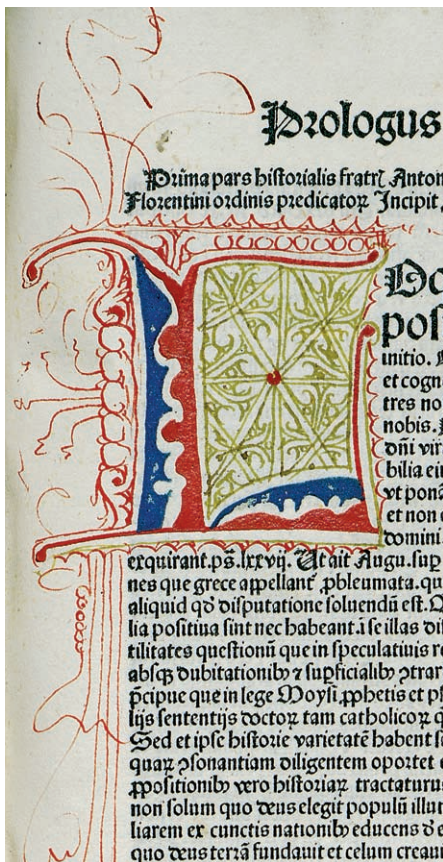 Prologus
Prima pars historialis fratrꝭ Anton
Florentini ordinis predicatoꝝ Incipit.
L
pos
initio.
et cogn
tres no
nobis.
dn̄i vir
bilia ei
vt ponā
et non
domini
exquirant.ps̄.lxxvij. Ut ait Augu.suꝑ
nes que grece appellant ꝓbleumata.qu
aliquid qd̄ disputatione soluendū est.
lia positiua sint nec habeant.i se illas di
tilitates questionū que in speculatiuis r
absqꝫ dubitationibꝫ ⁊ suꝑficialibꝫ ꝯtrar
p̄cipue que in lege Moysi.ꝓphetis et p
lijs sententijs doctoꝝ tam catholicoꝝ q
Sed et ipse historie varietatē habent s
quaꝝ ꝯsonantiam diligentem oportet
ꝓpositionibꝫ vero historiaꝝ tractaturus
non solum quo deus elegit populū illu
liarem ex cunctis nationibꝫ educens d̄ e
quo deus terrā fundauit et celum creaui